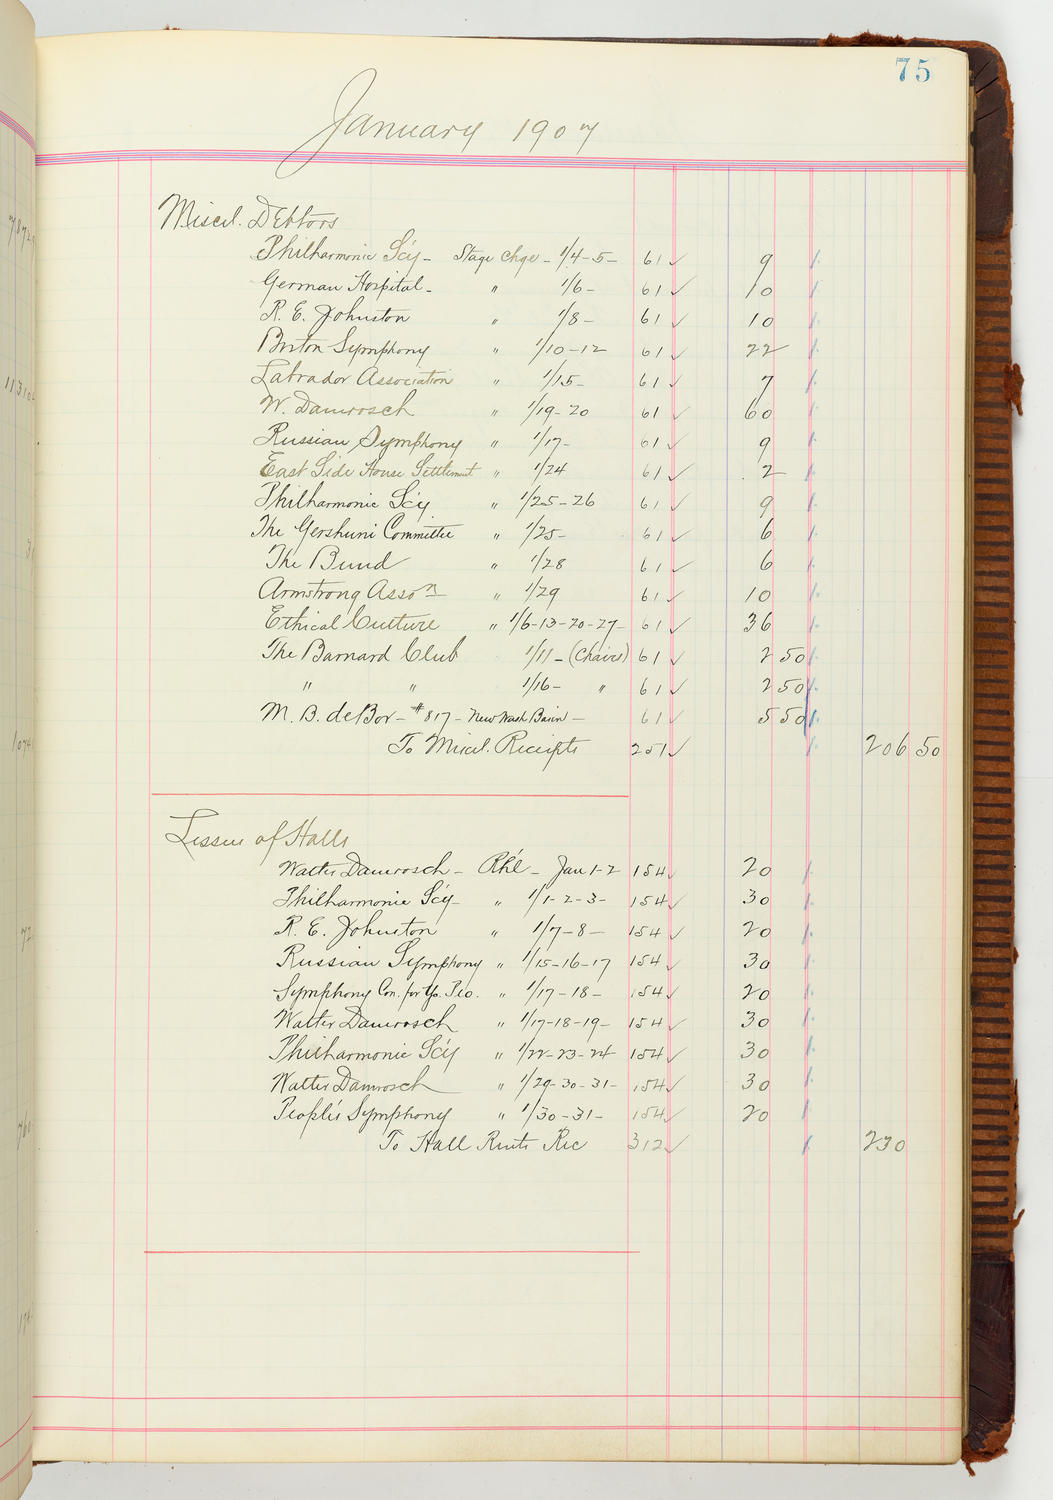 75
January 1907
Miscel. Debtors
Philharmonic Sc'y - Stage Chge - 1/4-5- 61 ✓ 9
German Hospital - " 1/6- 61 ✓ 10
R. E. Johnston " 1/8- 61 ✓ 10
Boston Symphony " 1/10-12 61 ✓ 22
Labrador Association " 1/15- 61 ✓ 7
W. Damrosch " 1/19-20 61 ✓ 60
Russian Symphony " 1/17- 61 ✓ 9
East Side House Settlement " 1/24 61 ✓ 2
Philharmonic Sc'y " 1/25-26 61 ✓ 9
The Gershuni Committee " 1/25- 61 ✓ 6
The Bund " 1/28 61 ✓ 6
Armstrong Asso'n " 1/29 61 ✓ 10
Ethical Culture " 1/6-13-20-27- 61 ✓ 36
The Barnard Club 1/11-(Chairs) 61 ✓ 2 50
" " 1/16- " 61 ✓ 2 50
M. B. deBor- #817- New Wash Basin- 61 ✓ 5 50
To Miscel. Receipts 251 ✓ 206 50
Lessees of Halls
Walter Damrosch - Rh'l - Jan 1-2 154 ✓ 20
Philharmonic Sc'y- " 1/1-2-3- 154 ✓ 30
R. E. Johnston " 1/7-8- 154 ✓ 20
Russian Symphony " 1/15-16-17 154 ✓ 30
Symphony Con. for Yg. Peo. " 1/17-18- 154 ✓ 20
Walter Damrosch " 1/17-18-19- 154 ✓ 30
Philharmonic Sc'y " 1/22-23-24 154 ✓ 30
Walter Damrosch " 1/29-30-31- 154 ✓ 30
People's Symphony " 1/30-31- 154 ✓ 20
To Hall Rents Rec 312 ✓ 230